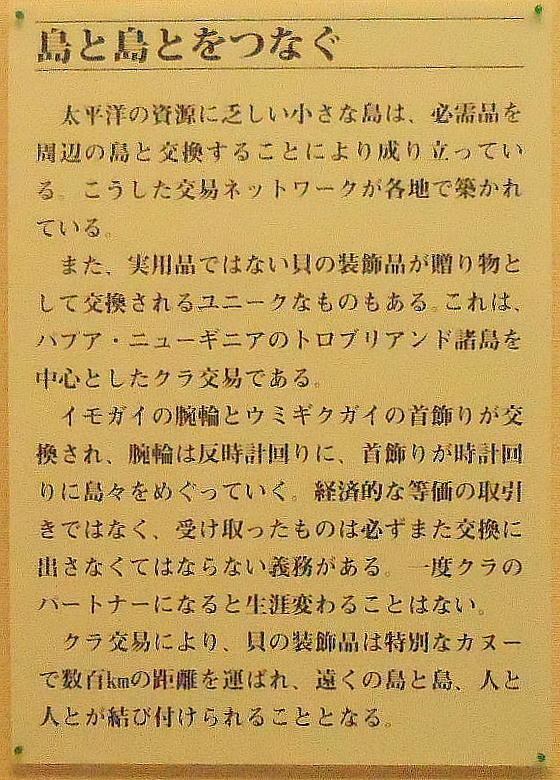 島と島とをつなぐ
太平洋の資源に乏しい小さな島は、必需品を
周辺の島と交換することにより成り立ってい
る。こうした交易ネットワークが各地で築かれ
ている。
また、実用品ではない貝の装飾品が贈り物と
して交換されるユニークなものもある。これは、
パプア・ニューギニアのトロブリアンド諸島を
中心としたクラ交易である。
イモガイの腕輪とウミギクガイの首飾りが交
換され、腕輪は反時計回りに、首飾りが時計回
りに島々をめぐっていく。経済的な等価の取引
きではなく、受け取ったものは必ずまた交換に
出さなくてはならない義務がある。一度クラの
パートナーになると生涯変わることはない。
クラ交易により、貝の装飾品は特別なカヌー
で数百㎞の距離を運ばれ、遠くの島と島、人と
人とが結び付けられることとなる。